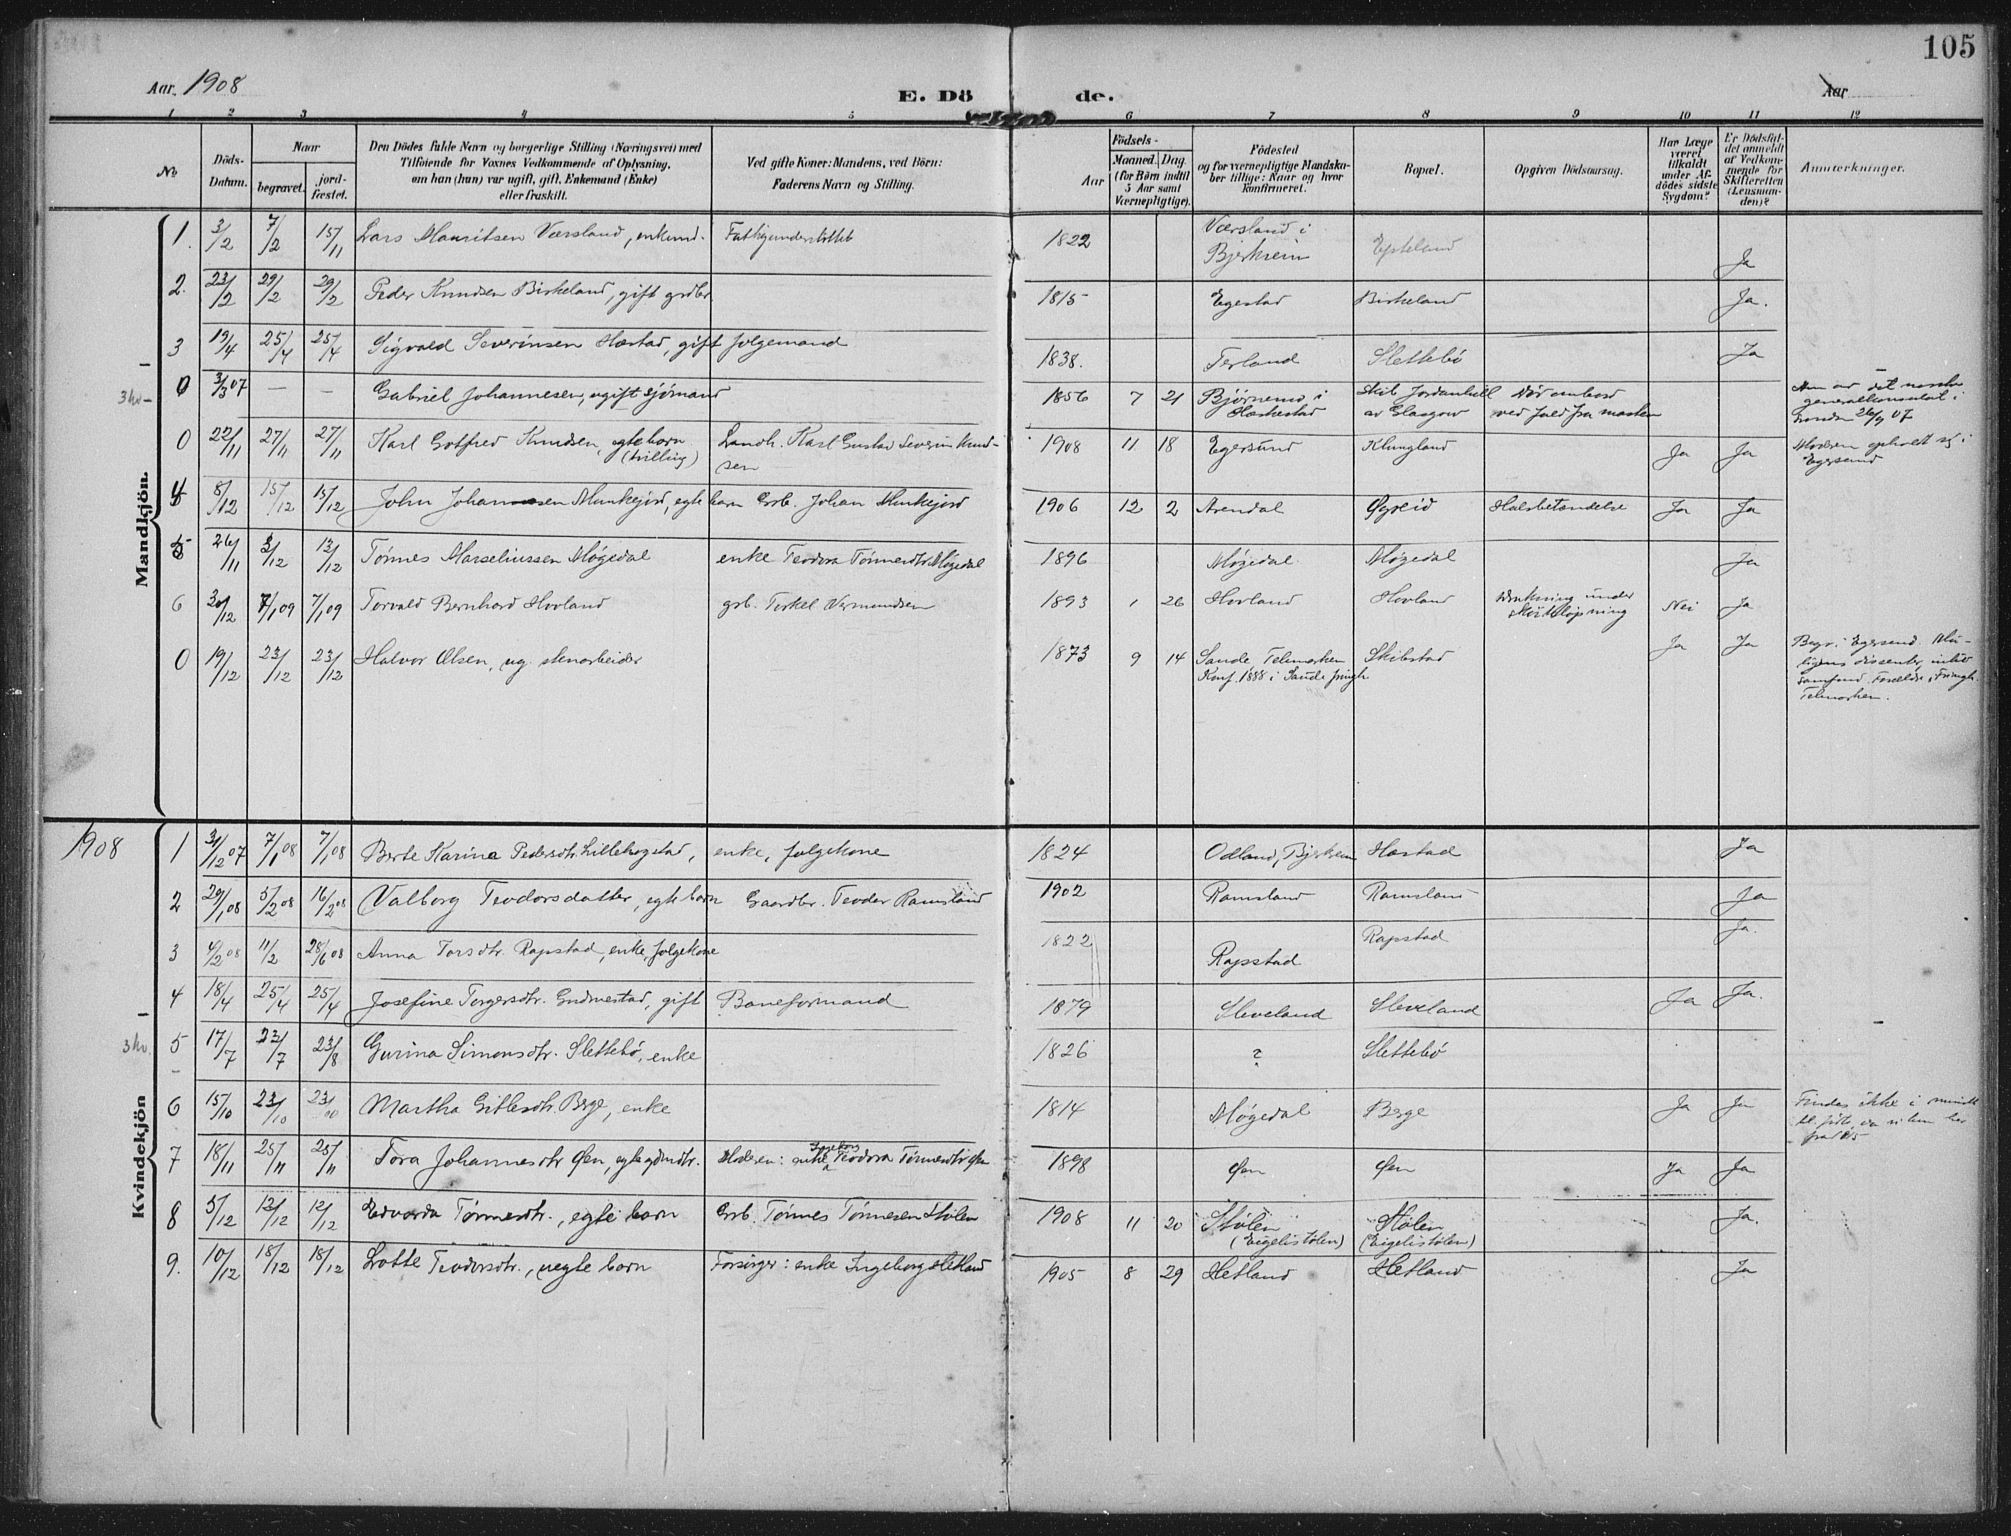 105
Aar. 1908
E. Dö de.
Aar
1 2 3 4 5 6 7 8 9 10 11 12
No
Döds-Datum.
Naar
begravet.
jord-fæstet.
Den Dödes fulde Navn og borgerlige Stilling (Næringsvei) med
Tilföiende for Voxnes Vedkommende af Oplysning,
om han (hun) var ugift, gift, Enkemand (Enke)
eller fraskilt.
Ved gifte Koner: Mandens, ved Börn:
Faderens Navn og Stilling.
Födsels-
Aar
Maaned. Dag.
(for Børn indtil
5 Aar samt
Værnepligtige).
Födested
og for værnepligtige Mandska-
ber tillige: Naar og hvor
konfirmeret.
Bopæl.
Opgiven Dödsaarsag.
Har Læge
været
tilkaldt
under Af-
dödes sidste
Sygdom?
Er Dödsfal-
det anmeldt
af Vedkom-
mende for
Skifteretten
(Lensman-
den)?
Anmerkninger.
Mandkjön.
1. 3/2 7/2 15/11 Lars Mauritsen Værsland, enkemd. Fattigunderstöttet 1822 Værsland i Bjerkreim Epteland Ja
2. 23/2 29/2 29/2 Peder Knudsen Birkeland, gift grdbr 1815 Egestad Birkeland Ja.
3 19/4 25/4 25/4 Sigvald Severinsen Hæstad, gift folgemand 1838. Terland Slettebö Ja
3 kr - 0 3/3 07 — — Gabriel Johannesen, ugift sjömand 1856 7 21 Björnemo i Hæskestad Skib Jordanhill av Glasgow Död ombord ved fald fra masten generalkonsulat i London 26/9 07
0 22/11 27/11 27/11 Karl Gotfred Knudsen, egte barn (tvilling) Landh. Karl Gustav Severin Knud-sen 1908 11 18 Egersund Klungland Ja Ja Moderen opholdt sig i Egersund
4 8/12 15/12 15/12 John Johannesen Munkejord, egte barn Grb. Johan Munkejord 1906 12 2 Arendal Øgreid Halsbetændelse Ja Ja
5 26/11 3/12 13/12 Tönnes Marseliussen Møgedal enke Teodora Tönnesdtr. Møgedal 1896 Møgedal Møgedal Ja
6 30/12 7/1 09 7/1 09 Torvald Bernhard Hovland grb. Torkel Vermundsen 1893 1 26 Hovland Hovland Drukning under Skøiteløpning Nei Ja
0 19/12 23/12 23/12 Halvor Olsen, ug. stenarbeider 1873 9 14 Sande Telemarken Konf. 1888 i Sande Skibstad Ja Ja Begr. i Egersund. dissenter, Telemarken.
1908
Kvindekjön
1 31/12 07 7/1 08 7/1 08 Berte Karina Pedersdtr. Lillehegstad, enke, folgekone 1824 Odland, Bjerkreim Hæstad Ja
2 29/1 08 5/2 08 16/2 08 Valborg Teodorsdatter, egte barn Gaardbr. Teodor Ramsland 1902 Ramsland Ramsland Ja
3 4/2 08 11/2 28/6 08 Anna Torsdtr. Rapstad, enke, folgekone 1822 Rapstad Rapstad Ja.
4 18/4 25/4 25/4 Josefine Torgersdtr. Gudmestad, gift Baneformand 1879 Sleveland Sleveland Ja Ja.
3 kr. 5 17/7 23/7 23/8 Gurina Simonsdtr. Slettebö, enke 1826 ? Slettebö
6 15/10 23/10 23/10 Martha Gitlesdtr. Berge, enke 1814 Møgedal Berge Ja Ja Findes ikke i
7 18/11 25/11 25/11 Tora Johannesdtr Øen, egte Moderen: enke Teodora Tönnesdtr Øen 1898 Øen Øen Ja Ja
8 5/12 12/12 12/12 Edvarda Tönnesdtr., egte barn Grb. Tönnes Tönnesen Stölen 1908 11 20 Stölen (Eigelistölen) Stölen (Eigelistölen) Ja.
9. 10/12 18/12 18/12 Lotte Teodorsdtr., uegte barn Forsörger: enke Ingeborg Hetland 1905 8 29 Hetland Hetland Ja